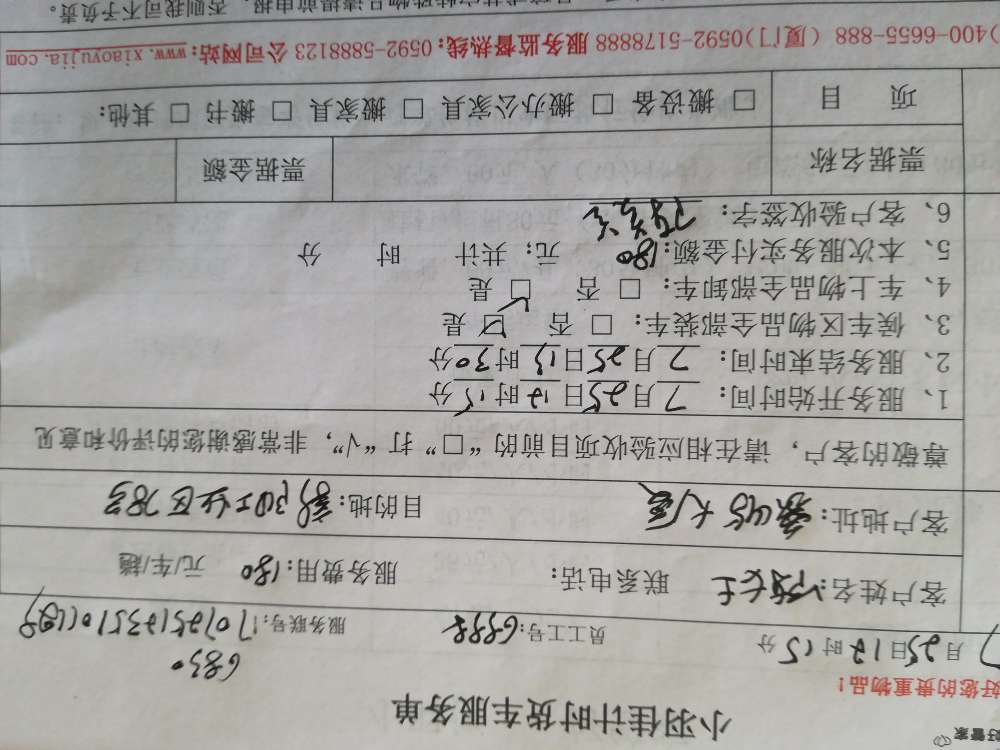 好管家
小羽佳计时货车服务单
好您的贵重物品！
6830
7月25日12时15分 员工工号：6888 服务联号：
客户姓名：陈女士 联系电话： 服务费用：180 元/车/趟
客户地址： 大厦 目的地： 工业区78号
尊敬的客户，请在相应验收项目前的“□”打“√”，非常感谢您的评价和意见
1、服务开始时间：7月25日12时15分
2、服务结束时间：7月25日13时30分
3、候车区物品全部装车：□ 否 ☑ 是
4、车上物品全部卸车：□ 否 □ 是
5、本次服务实付金额：180 元；共计 时 分
6、客户验收签字：
票据名称 票据金额
项 目 □ 搬设备 □ 搬办公家具 □ 搬家具 □ 搬书 □ 其他：
)400-6655-888 （厦门)0592-5178888 服务监督热线：0592-5888123 公司网站：www.xiaoyujia.com
请提前申报，否则我司不予负责。